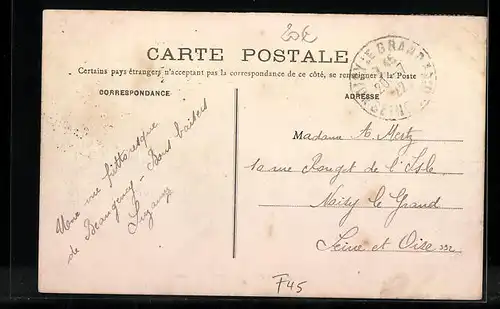 20€
CARTE POSTALE
Certains pays étrangers n'acceptant pas la correspondance de ce côté, se renseigner à la Poste
CORRESPONDANCE
ADRESSE
Une vue pittoresque
de Beaugency. Bons baisers
Suzanne
Madame A. Mertz
rue Rouget de l'Isle
Noisy le Grand
Seine et Oise
F45